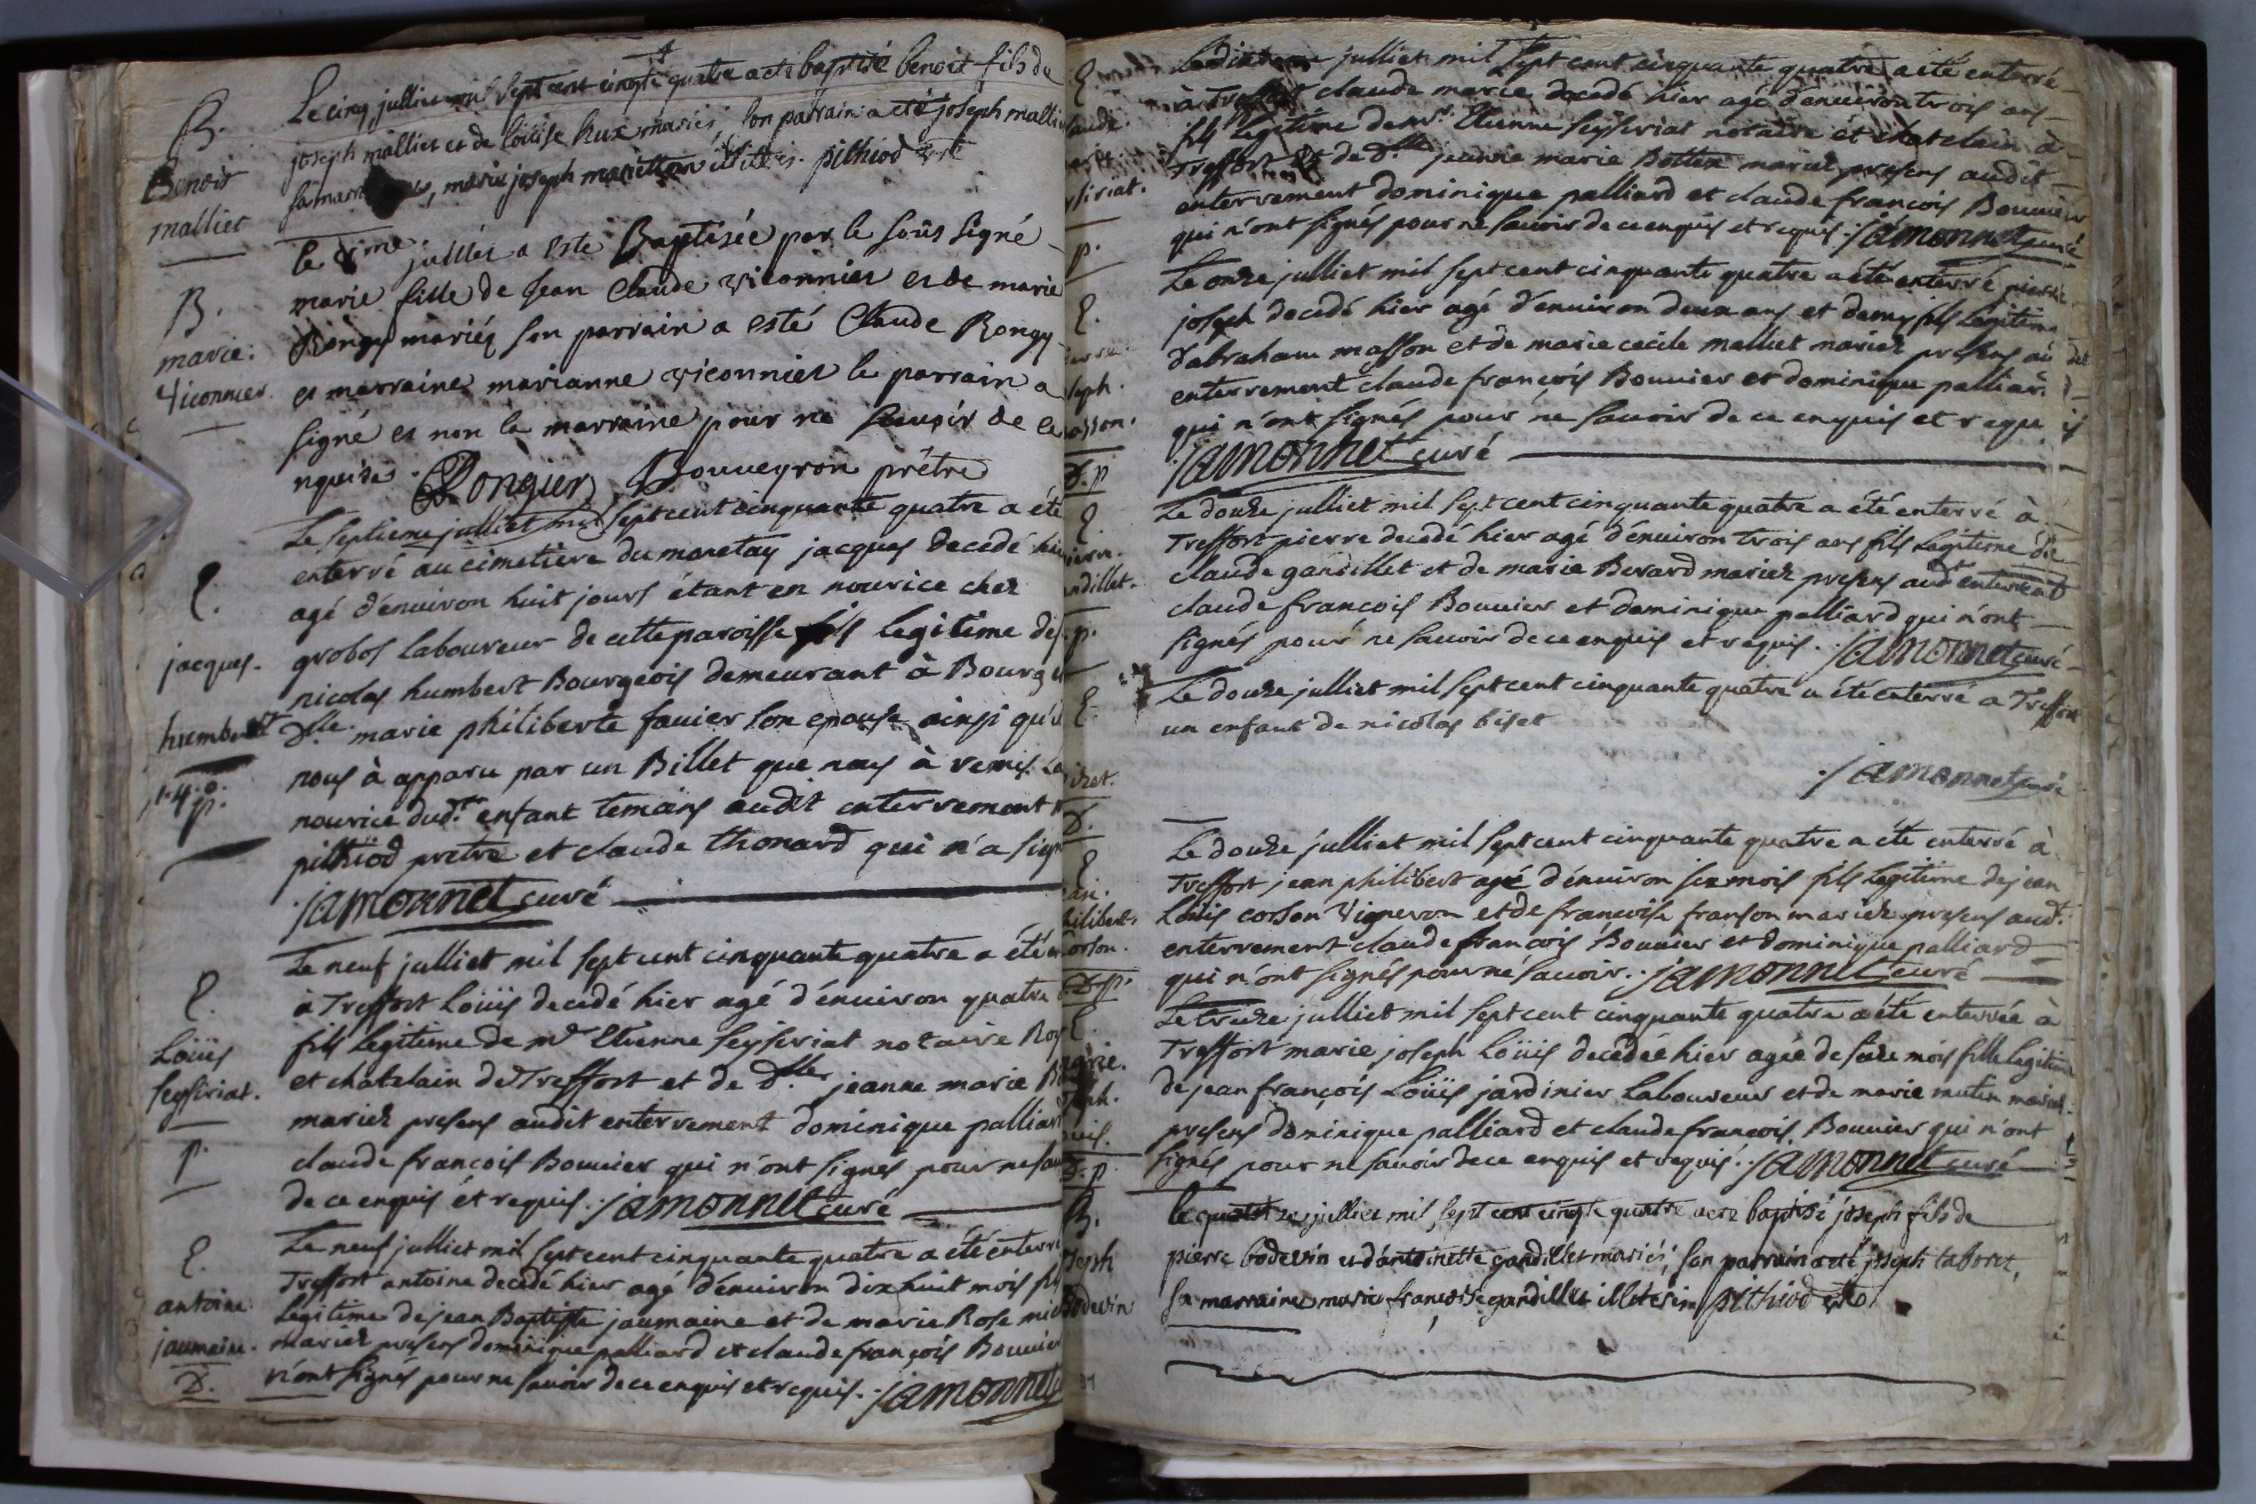 B.
Benoit
malliet
Le cinq julliet mil sept cent cinqte quatre a eté baptisé benoit fils de
joseph malliet et de loüise hux mariés, son parrain a eté joseph malliet
sa marraine, marie joseph marietton illiteres. pithiod vre
B.
marie
viconnier.
le julliet a esté Baptisée par le soûs signé
marie fille de jean Claude viconnier et de marie
Rongy mariéz son parrain a esté Claude Rongy
et marraine marianne viconnier le parrain a
signé et non la marraine pour ne sçavoir de ce
nquise. Rongier, Bouveyron prêtre
E.
jacques.
humbert
p.
Le septieme julliet mil sept cent cinquante quatre a été
enterré au cimetiere du maretay jacques decedé hier
agé d'enuiron huit jours étant en nourice chez
grobos laboureur de cette paroisse fils legitime de s.
nicolas humbert Bourgeois demeurant à Bourg et
dlle. marie philiberte fauier son epouse ainsi qu'il
nous à apparu par un Billet que nous à remis la
nourice dud.t enfant temoins audit enterrement
pithiod pretre et claude thonard qui n'a signé
jamonnet curé
E.
Loüis
seyseriat.
p.
Le neuf julliet mil sept cent cinquante quatre a été
à Treffort Loüis decedé hier agé d'enuiron quatre
fils legitime de mr Etienne seyseriat notaire Roy
et chatelain de Treffort et de dlle jeanne marie
mariez presens audit enterrement dominique palliard
claude francois Bouuier qui n'ont signes pour ne sau
de ce enquis et requis. jamonnet curé
E.
antoine
jaumaine.
D.
Le neuf julliet mil sept cent cinquante quatre a été enterré
Treffort antoine decedé hier agé d'enuiron dix huit mois fils
legitime de jean Baptiste jaumaine et de marie Rose
mariez presens dominique palliard et claude françois Bouuier
n'ont signés pour ne sauoir de ce enquis et requis. jamonnet
E.
Le dix julliet mil sept cent cinquante quatre a été enterré
à Treffort claude marie decedé hier agé d'enuiron trois ans
fils legitime de mr. Etienne seyseriat notaire et chatelain à
Treffort et de dlle jeanne marie Bottex mariez presens audit
enterrement dominique palliard et claude francois Bouuier
qui n'ont signés pour ne sauoir de ce enquis et requis. jamonnet curé
p.
E.
Le onze julliet mil sept cent cinquante quatre a été enterré pierre
joseph decedé hier agé d'enuiron deux ans et demy fils legitime
d'abraham masson et de marie cecile malliet mariez presens au dit
enterrement claude françois Bouuier et dominique palliard
qui n'ont signés pour ne sauoir de ce enquis et requis
jamonnet curé
D.p
E.
Le douze julliet mil sept cent cinquante quatre a été enterré à
Treffort pierre decedé hier agé d'enuiron trois ans fils legitime de
claude gandillet et de marie Berard mariez presens aud.t enterrement
claude françois Bouuier et dominique palliard qui n'ont
signés pour ne sauoir de ce enquis et requis. jamonnet curé
p.
E.
Le douze julliet mil sept cent cinquante quatre a été enterré a Treffort
un enfant de nicolas biset
jamonnet curé
D.
E
Le douze julliet mil sept cent cinquante quatre a été enterré à
Treffort jean philibert agé d'énuiron six mois fils legitime de jean
Loüis corson vigneron et de francoise franson mariez presens aud.t
enterrement claude francois Bouuier et dominique palliard
qui n'ont signés pour ne sauoir. jamonnet curé
D.p.
E.
Le treize julliet mil sept cent cinquante quatre a été enterrée à
Treffort marie joseph Loüis decedée hier agée de seize mois fille legitime
de jean françois Loüis jardinier laboureur et de marie mutin mariez
presens dominique palliard et claude francois Bouuier qui n'ont
signés pour ne sauoir de ce enquis et requis. jamonnet curé
D.p.
B.
le quatorze julliet mil sept cent cinqte quatre a eté baptisé joseph fils de
pierre bodevin et d'antoinette gandillet mariés; son parrain a eté joseph taboret,
sa marraine marie françoise gandillet illiteres. pithiod vre